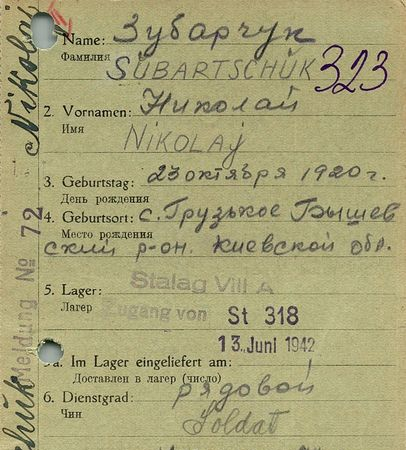 Name: Зубарчук
Фамилия
SÜBARTSCHÜK 323
2. Vornamen: Николай
Имя
NIKOLAJ
3. Geburtstag: 23 октября 1920 г.
День рождения
4. Geburtsort: с. Грузькое Бышев
Место рождения
ский р-он. Киевской обл.
5. Lager: Stalag VIII A
Лагер Zugang von St 318
13. Juni 1942
a. Im Lager eingeliefert am:
Доставлен в лагер (число)
6. Dienstgrad: рядовой
Чин Soldat
Nikolaj
Meldung No 72